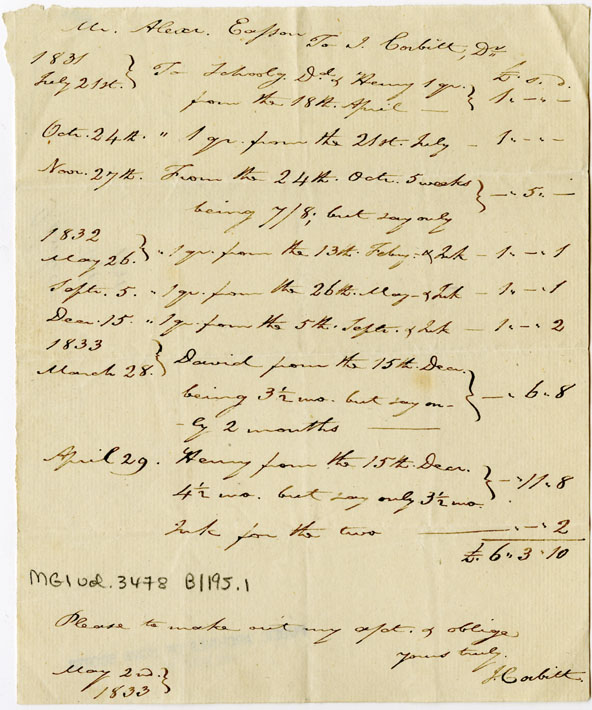 Mr. Alexr. Easson To J. Corbitt, Dr.
1831 July 21st. } To Schoolg. Dd. & Henry 1 qr. from the 18th. April — } £ s. d. 1 „ - „ -
Octr. 24th. „ 1 qr. from the 21st. July - 1 „ - „ -
Novr. 27th. From the 24th. Octr. 5 weeks
being 7/8; but say only } - „ 5 „ -
1832
May 26. } „ 1 qr. from the 13th. Feby. & Ink - 1 „ - „ 1
Septr. 5. „ 1 qr. from the 26th. May - & Ink - 1 „ - „ 1
Decr. 15. „ 1 qr. from the 5th. Septr. & Ink - 1 „ - „ 2
1833
March 28. } David from the 15th. Decr.
being 3½ mo. but say on- } - „ 6 „ 8
-ly 2 months —
April 29. Henry from the 15th. Decr.
4½ mo. but say only 3½ mo. } - „ 11 „ 8
Ink for the two — „ - „ 2
£ 6 „ 3 „ 10
MG1 vol. 3478 B/195.1
Please to make out my apt. & oblige
yours truly.
J. Corbitt.
May 2nd.
1833 }